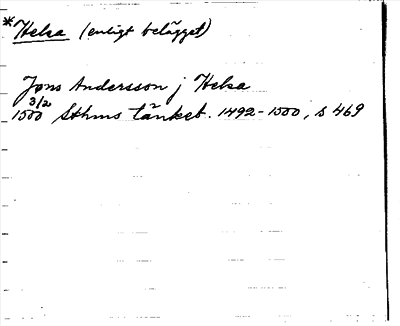 *Helsa (enligt belägget)
Jøns Andersson j Helsa
3/2
1500 Sthms tänkeb. 1492-1500, s 469